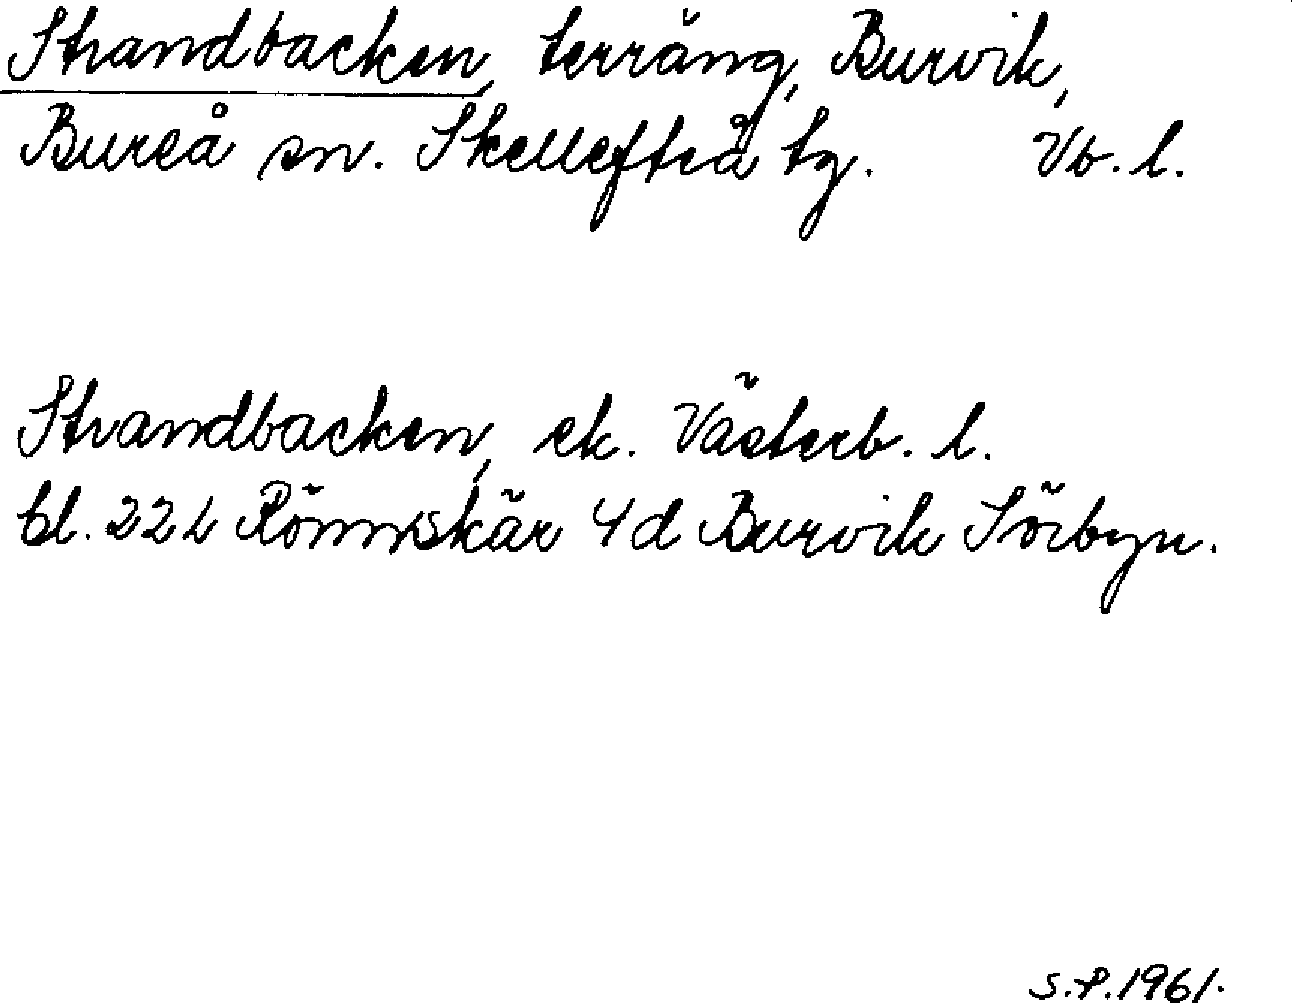 Strandbacken, terräng, Burvik,
Bureå sn. Skellefteå tg. Vb. l.
Strandbacken, ek. Västerb. l.
bl. 22L Rönnskär 4d Burvik Sörbyn.
S.P. 1961.